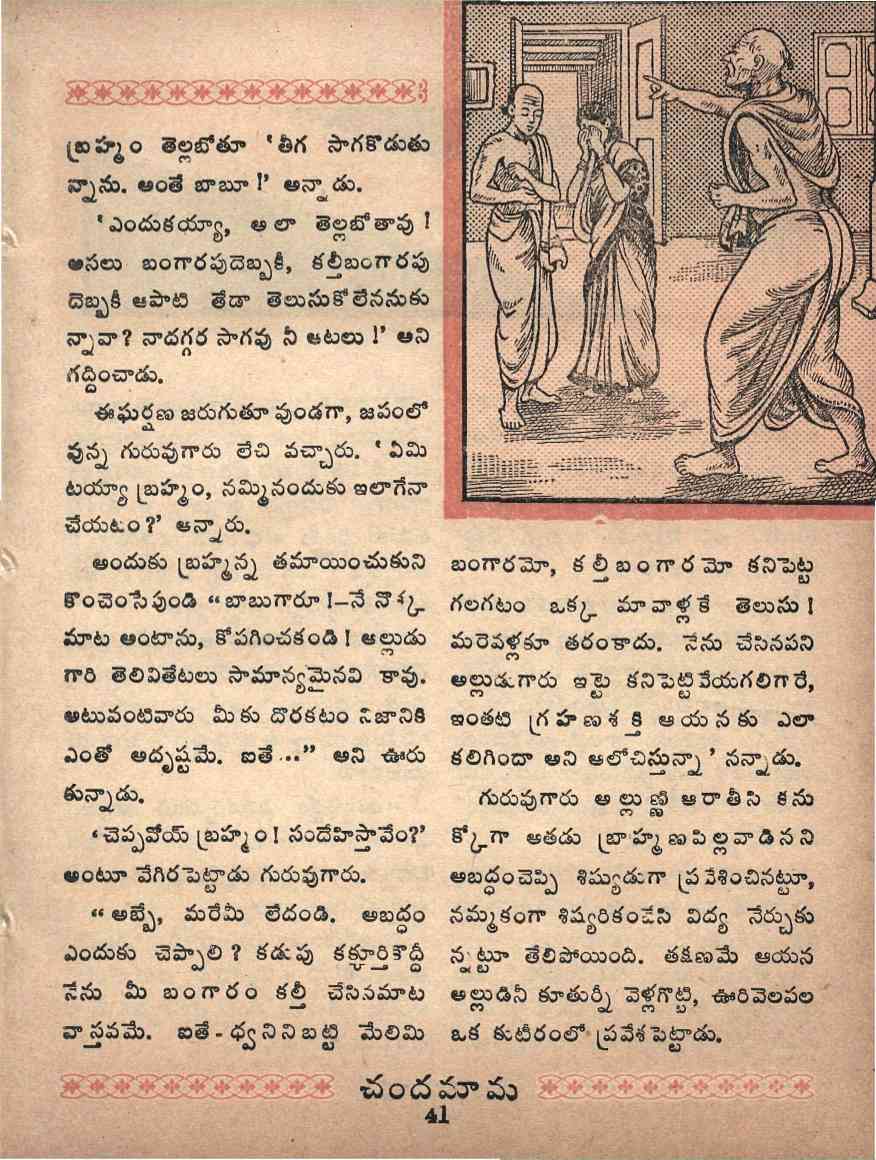 బ్రహ్మం తెల్లబోతూ ‘తీగ సాగకొడుతు
న్నాను. అంతే బాబూ !’ అన్నాడు.
‘ఎందుకయ్యా, అలా తెల్లబోతావు !
అసలు బంగారపుదెబ్బకీ, కల్తీబంగారపు
దెబ్బకీ ఆపాటి తేడా తెలుసుకోలేననుకు
న్నావా? నాదగ్గర సాగవు నీ ఆటలు !’ అని
గద్దించాడు.
ఈఘర్షణ జరుగుతూ వుండగా, జపంలో
వున్న గురువుగారు లేచి వచ్చారు. ‘ఏమి
టయ్యా బ్రహ్మం, నమ్మినందుకు ఇలాగేనా
చేయటం?’ అన్నారు.
అందుకు బ్రహ్మన్న తమాయించుకుని
కొంచెంసేపుండి “బాబుగారూ !—నే నొక్క
మాట అంటాను, కోపగించకండి ! అల్లుడు
గారి తెలివితేటలు సామాన్యమైనవి కావు.
అటువంటివారు మీకు దొరకటం నిజానికి
ఎంతో అదృష్టమే. ఐతే...” అని ఊరు
కున్నాడు.
‘చెప్పవోయ్ బ్రహ్మం! సందేహిస్తావేం?’
అంటూ వేగిరపెట్టాడు గురువుగారు.
“అబ్బే, మరేమీ లేదండి. అబద్ధం
ఎందుకు చెప్పాలి ? కడుపు కక్కూర్తికొద్దీ
నేను మీ బంగారం కల్తీ చేసినమాట
వాస్తవమే. ఐతే - ధ్వనినిబట్టి మేలిమి
బంగారమో, కల్తీబంగారమో కనిపెట్ట
గలగటం ఒక్క మావాళ్లకే తెలుసు !
మరెవళ్లకూ తరంకాదు. నేను చేసినపని
అల్లుడుగారు ఇట్టె కనిపెట్టివేయగలిగారే,
ఇంతటి గ్రహణశక్తి ఆయనకు ఎలా
కలిగిందా అని ఆలోచిస్తున్నా’ నన్నాడు.
గురువుగారు అల్లుణ్ణి ఆరాతీసి కను
క్కోగా అతడు బ్రాహ్మణపిల్లవాడినని
అబద్ధంచెప్పి శిష్యుడుగా ప్రవేశించినట్టూ,
నమ్మకంగా శిష్యరికంచేసి విద్య నేర్చుకు
న్నట్టూ తేలిపోయింది. తక్షణమే ఆయన
అల్లుడినీ కూతుర్నీ వెళ్లగొట్టి, ఊరివెలపల
ఒక కుటీరంలో ప్రవేశపెట్టాడు.
చందమామ
41